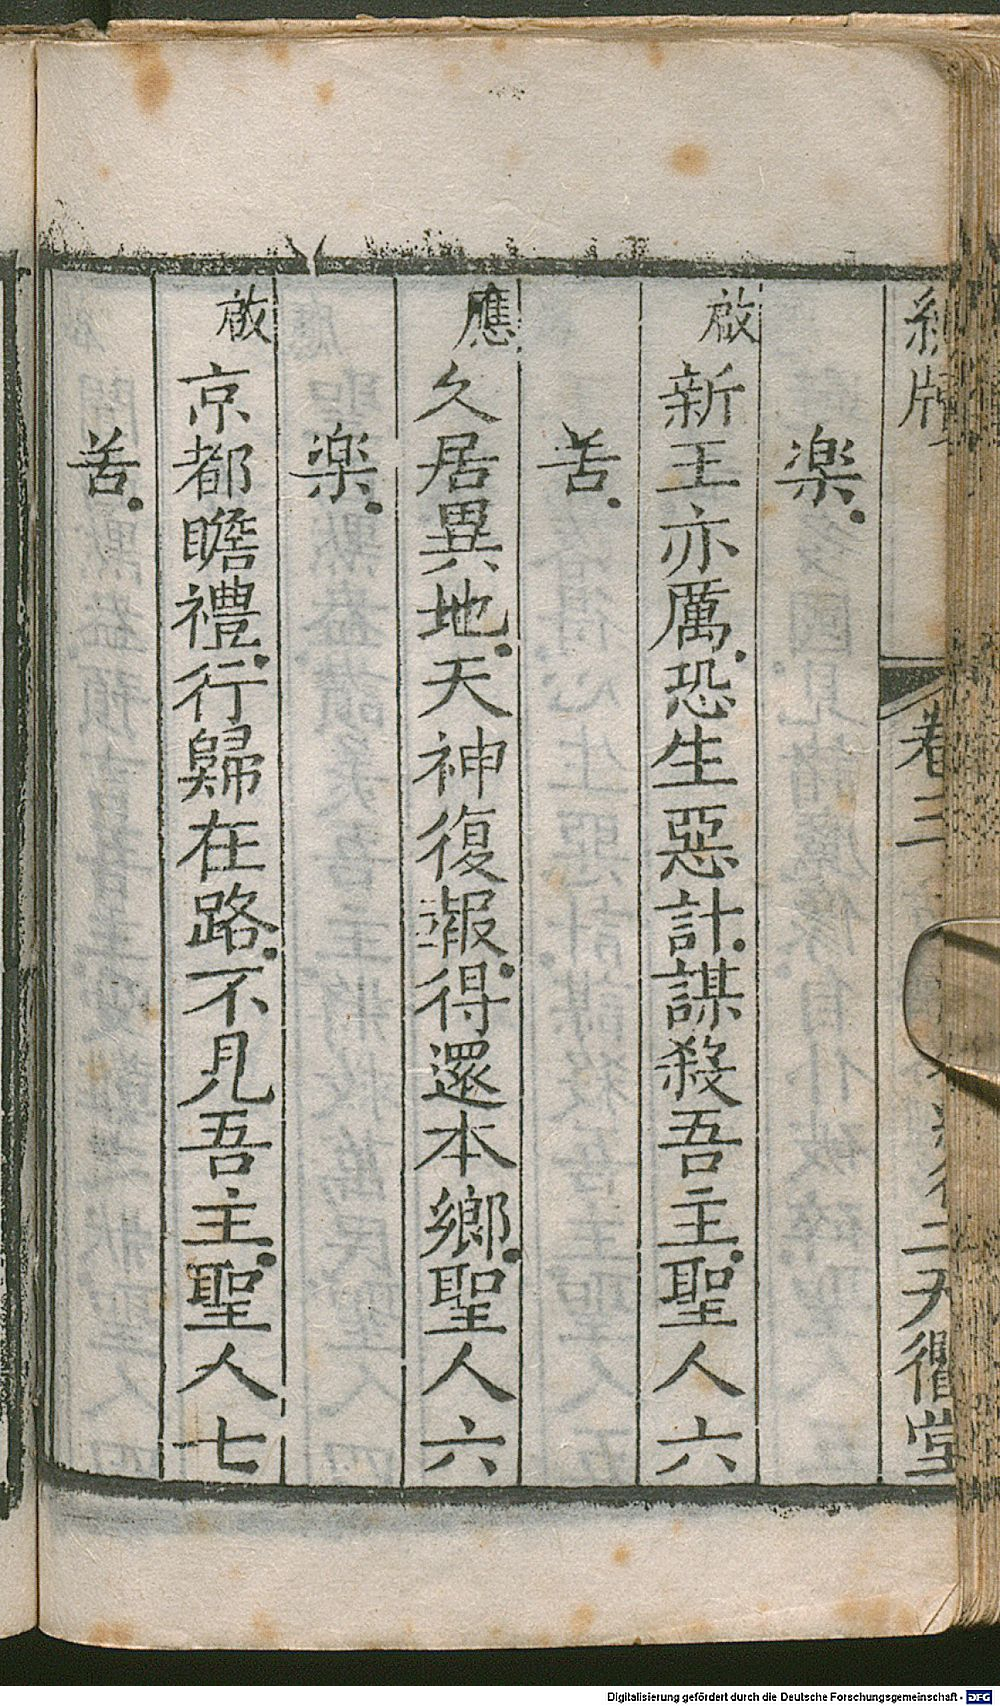 卷三
堂
楽。
啟 新王亦厲。恐生惡計。謀殺吾主。聖人六
苦。
應 久居異地。天神復報。得還本鄉。聖人六
楽。
啟 京都瞻禮。行歸在路。不見吾主。聖人七
苦。
Digitalisierung gefördert durch die Deutsche Forschungsgemeinschaft - DFG